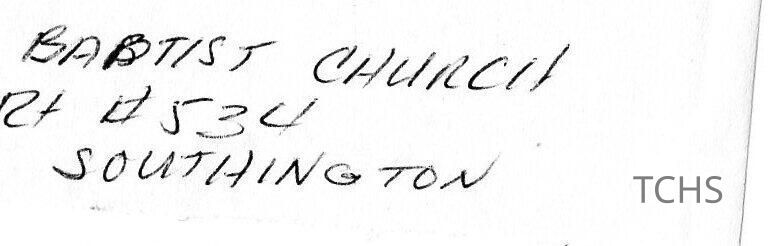 BABTIST CHURCH
Rt #534
SOUTHINGTON
TCHS